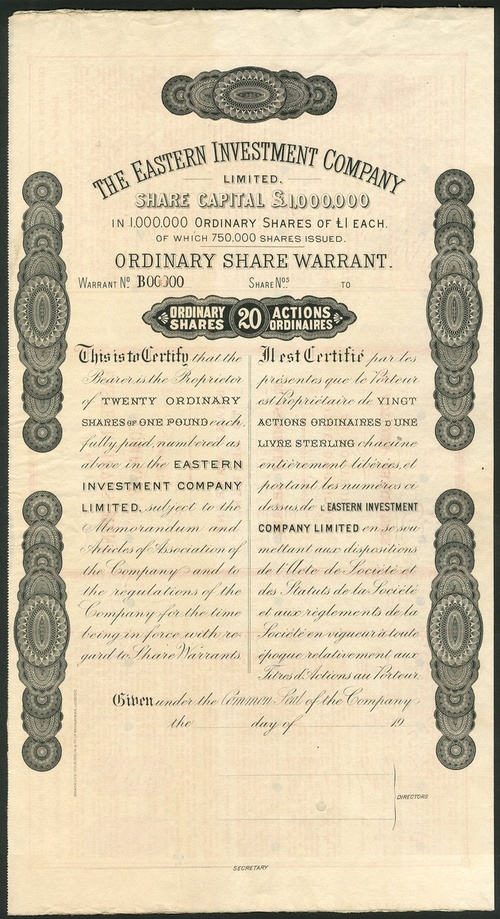 THE EASTERN INVESTMENT COMPANY
LIMITED.
SHARE CAPITAL £1,000,000
IN 1,000,000 ORDINARY SHARES OF £1 EACH.
OF WHICH 750,000 SHARES ISSUED.
ORDINARY SHARE WARRANT.
WARRANT No. B00000 SHARE Nos. TO
ORDINARY SHARES 20 ACTIONS ORDINAIRES
This is to Certify that the
Bearer is the Proprietor
of TWENTY ORDINARY
SHARES OF ONE POUND each,
fully paid, numbered as
above in the EASTERN
INVESTMENT COMPANY
LIMITED, subject to the
Memorandum and
Articles of Association of
the Company and to
the regulations of the
Company for the time
being in force with re-
gard to Share Warrants.
Il est Certifié par les
présentes que le Porteur
est Propriétaire de VINGT
ACTIONS ORDINAIRES D'UNE
LIVRE STERLING chacune
entièrement libérées, et
portant les numéros ci
dessus de L'EASTERN INVESTMENT
COMPANY LIMITED en se sou-
mettant aux dispositions
de l'Acte de Société et
des Statuts de la Société
et aux règlements de la
Société en vigueur à toute
époque relativement aux
Titres d'Actions au Porteur.
Given under the Common Seal of the Company
the day of 19
DIRECTORS
SECRETARY